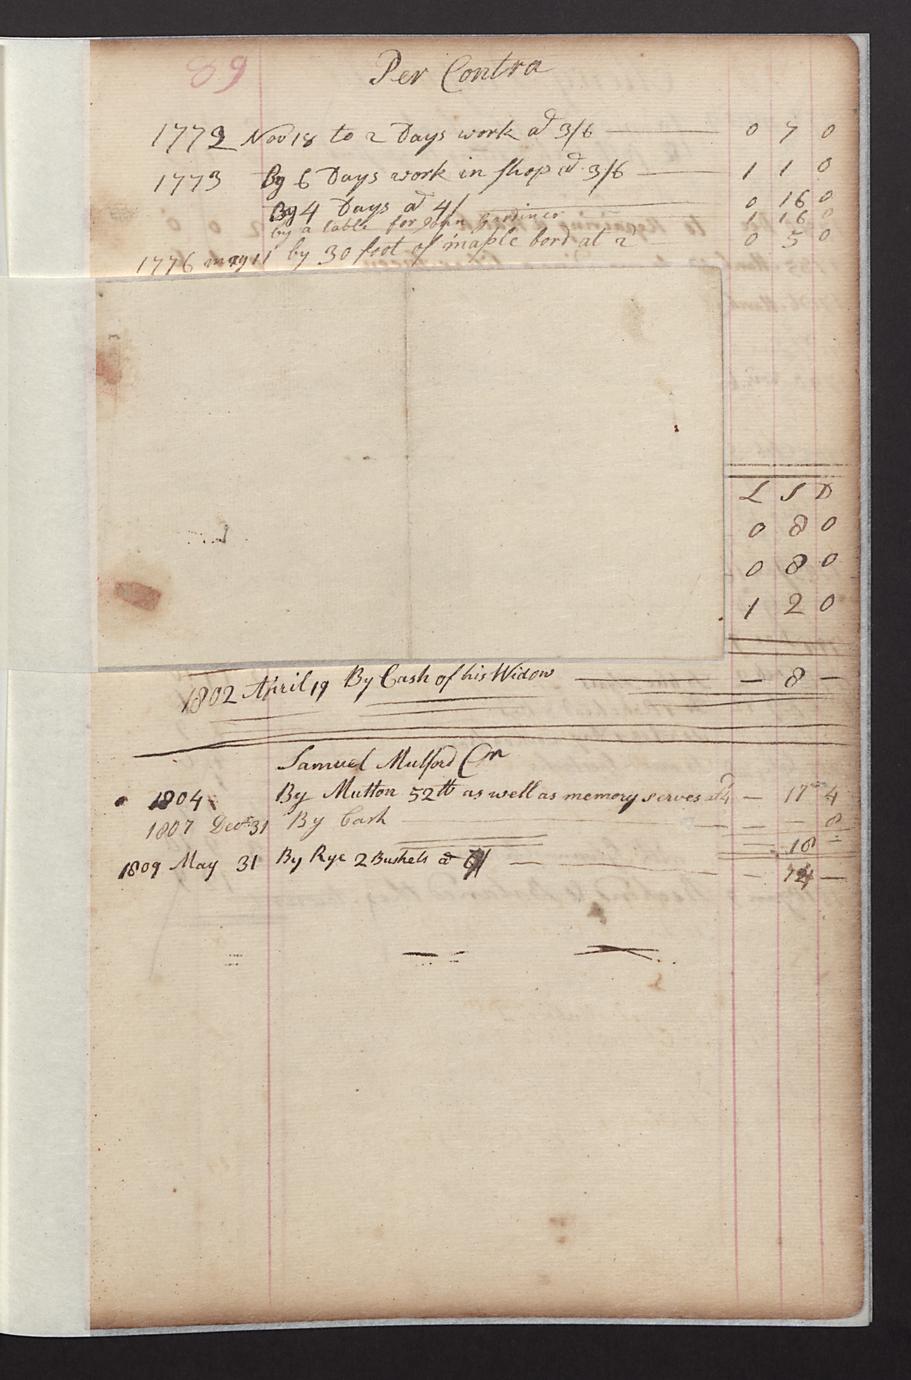 89 Per Contra
1772 Nov 18 to 2 Days work at 3/6 0 7 0
1773 By 6 Days work in shop at 3/6 1 1 0
By 4 Days at 4/ 0 16 0
by a table for John Gardiner 1 16 0
1776 may 11 by 30 foot of maple bord at 2 0 5 0
L S D
0 8 0
0 8 0
1 2 0
1802 April 19 By Cash of his Widow — 8 —
Samuel Mulford Cr
1804 By Mutton 52 lb as well as memory serves at 4 — 17 4
1807 Decr 31 By Cash — — 8
18 =
1809 May 31 By Rye 2 Bushels a —